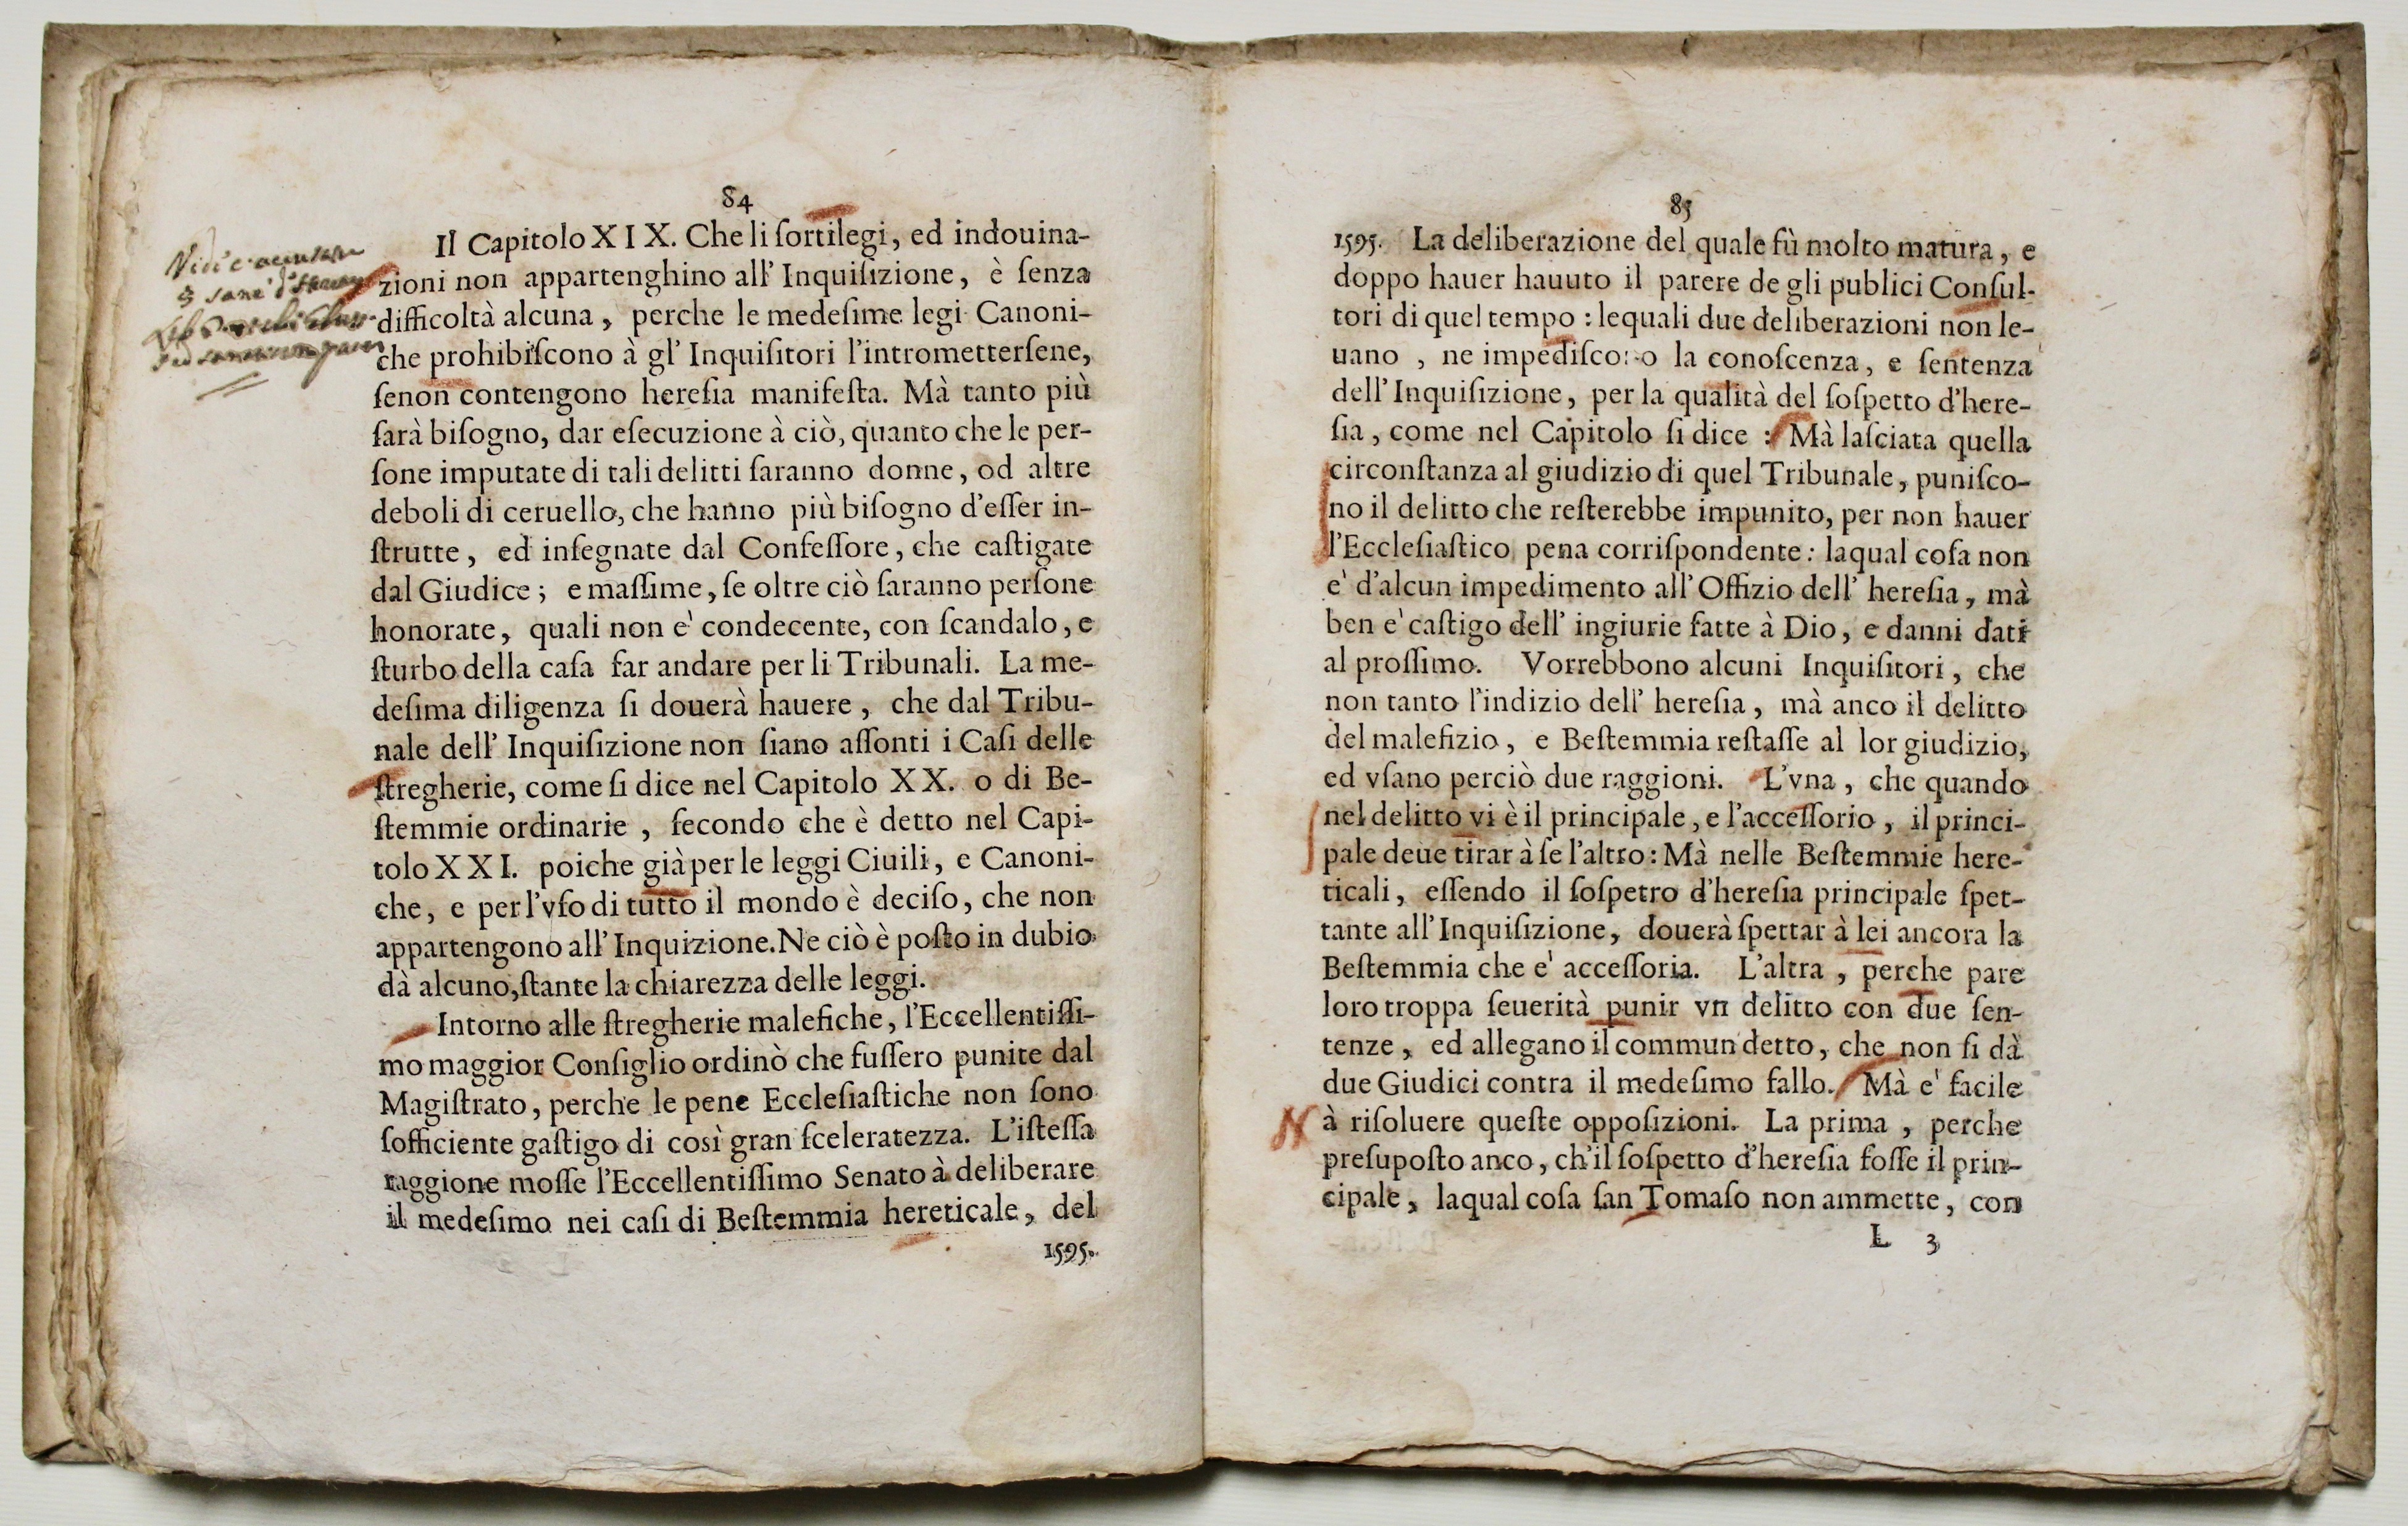 84
Il Capitolo XIX. Che li ſortilegi, ed indouina-
zioni non appartenghino all' Inquiſizione, è ſenza
difficoltà alcuna, perche le medeſime legi Canoni-
che prohibiſcono à gl' Inquiſitori l'intrometterſene,
ſenon contengono hereſia manifeſta. Mà tanto più
ſarà biſogno, dar eſecuzione à ciò, quanto che le per-
ſone imputate di tali delitti ſaranno donne, od altre
deboli di ceruello, che hanno più biſogno d'eſſer in-
ſtrutte, ed inſegnate dal Confeſſore, che caſtigate
dal Giudice; e maſſime, ſe oltre ciò ſaranno perſone
honorate, quali non e' condecente, con ſcandalo, e
ſturbo della caſa far andare per li Tribunali. La me-
deſima diligenza ſi douerà hauere, che dal Tribu-
nale dell' Inquiſizione non ſiano aſſonti i Caſi delle
ſtregherie, come ſi dice nel Capitolo XX. o di Be-
ſtemmie ordinarie, ſecondo che è detto nel Capi-
tolo XXI. poiche già per le leggi Ciuili, e Canoni-
che, e per l'vſo di tutto il mondo è deciſo, che non
appartengono all' Inquizione. Ne ciò è poſto in dubio
dà alcuno, ſtante la chiarezza delle leggi.
Intorno alle ſtregherie malefiche, l'Eccellentiſſi-
mo maggior Conſiglio ordinò che fuſſero punite dal
Magiſtrato, perche le pene Eccleſiaſtiche non ſono
ſofficiente gaſtigo di così gran ſceleratezza. L'iſteſſa
raggione moſſe l'Eccellentiſſimo Senato à deliberare
il medeſimo nei caſi di Beſtemmia hereticale, del
1595.
85
1595. La deliberazione del quale fù molto matura, e
doppo hauer hauuto il parere de gli publici Conſul-
tori di quel tempo : lequali due deliberazioni non le-
uano, ne impediſcono la conoſcenza, e ſentenza
dell' Inquiſizione, per la qualità del ſoſpetto d'here-
ſia, come nel Capitolo ſi dice : Mà laſciata quella
circonſtanza al giudizio di quel Tribunale, puniſco-
no il delitto che reſterebbe impunito, per non hauer
l'Eccleſiaſtico pena corriſpondente : laqual coſa non
e' d'alcun impedimento all' Offizio dell' hereſia, mà
ben e' caſtigo dell' ingiurie fatte à Dio, e danni dati
al proſſimo. Vorrebbono alcuni Inquiſitori, che
non tanto l'indizio dell' hereſia, mà anco il delitto
del malefizio, e Beſtemmia reſtaſſe al lor giudizio,
ed vſano perciò due raggioni. L'vna, che quando
nel delitto vi è il principale, e l'acceſſorio, il princi-
pale deue tirar à ſe l'altro: Mà nelle Beſtemmie here-
ticali, eſſendo il ſoſpetro d'hereſia principale ſpet-
tante all' Inquiſizione, douerà ſpettar à lei ancora la
Beſtemmia che e' acceſſoria. L'altra, perche pare
loro troppa ſeuerità punir vn delitto con due ſen-
tenze, ed allegano il commun detto, che non ſi dà
due Giudici contra il medeſimo fallo. Mà e' facile
à riſoluere queſte oppoſizioni. La prima, perche
preſupoſto anco, ch'il ſoſpetto d'hereſia foſſe il prin-
cipale, laqual coſa ſan Tomaſo non ammette, con
L 3